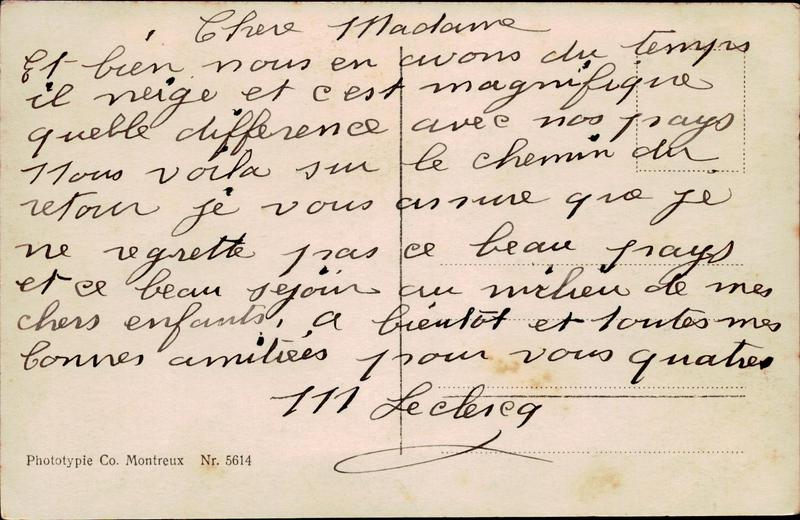 Chere Madame
Et bien nous en avons du temps
il neige et c'est magnifique
quelle difference avec nos pays
Nous voila sur le chemin du
retour je vous assure que je
ne regrette pas ce beau pays
et ce beau sejour au milieu de mes
chers enfants. a bientôt et toutes mes
bonnes amitiées pour vous quatres
M Leclercq
Phototypie Co. Montreux Nr. 5614